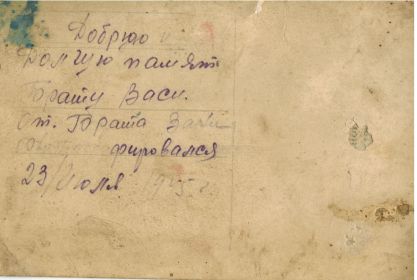 Добрую и
Долгую памят
Брату Васи.
От. Брата
фировался
23 Июля 1945 г.